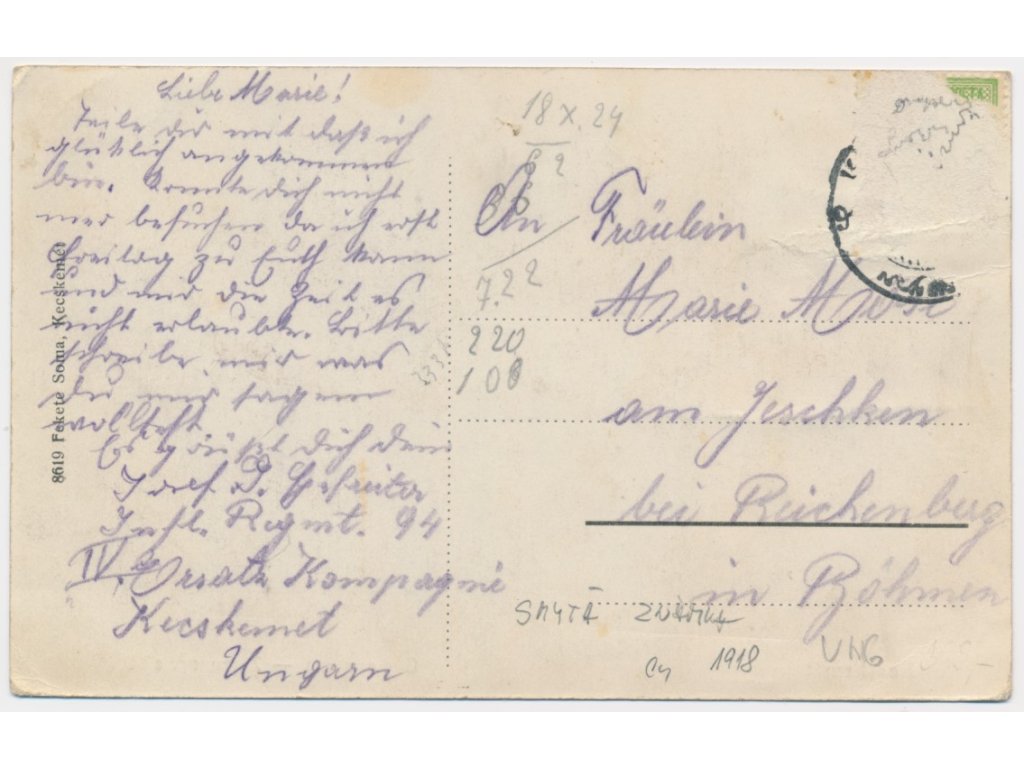 Liebe Marie!
Teile dir mit daß ich
glüklich angekommen
bin. Konnte dich nicht
mer besuchen da ich erst
Freitag zu Euch kann
und mir die Zeit es
nicht erlaubte. Bitte
schreibe mir was
du mir sagen
wolltest
Es grüßt dich dein
Josef P. Gefreiter
Inft. Regmt. 94
IV. Ersatz Kompagnie
Kecskemet
Ungarn
8619 Fekete Soma, Kecskemét
18 X. 24
An Fräulein
7.22
Marie
220
100
am Jeschken
bei Reichenberg
in Böhmen
SMYTÁ ZNÁMKA
1918
UNG
POSTA